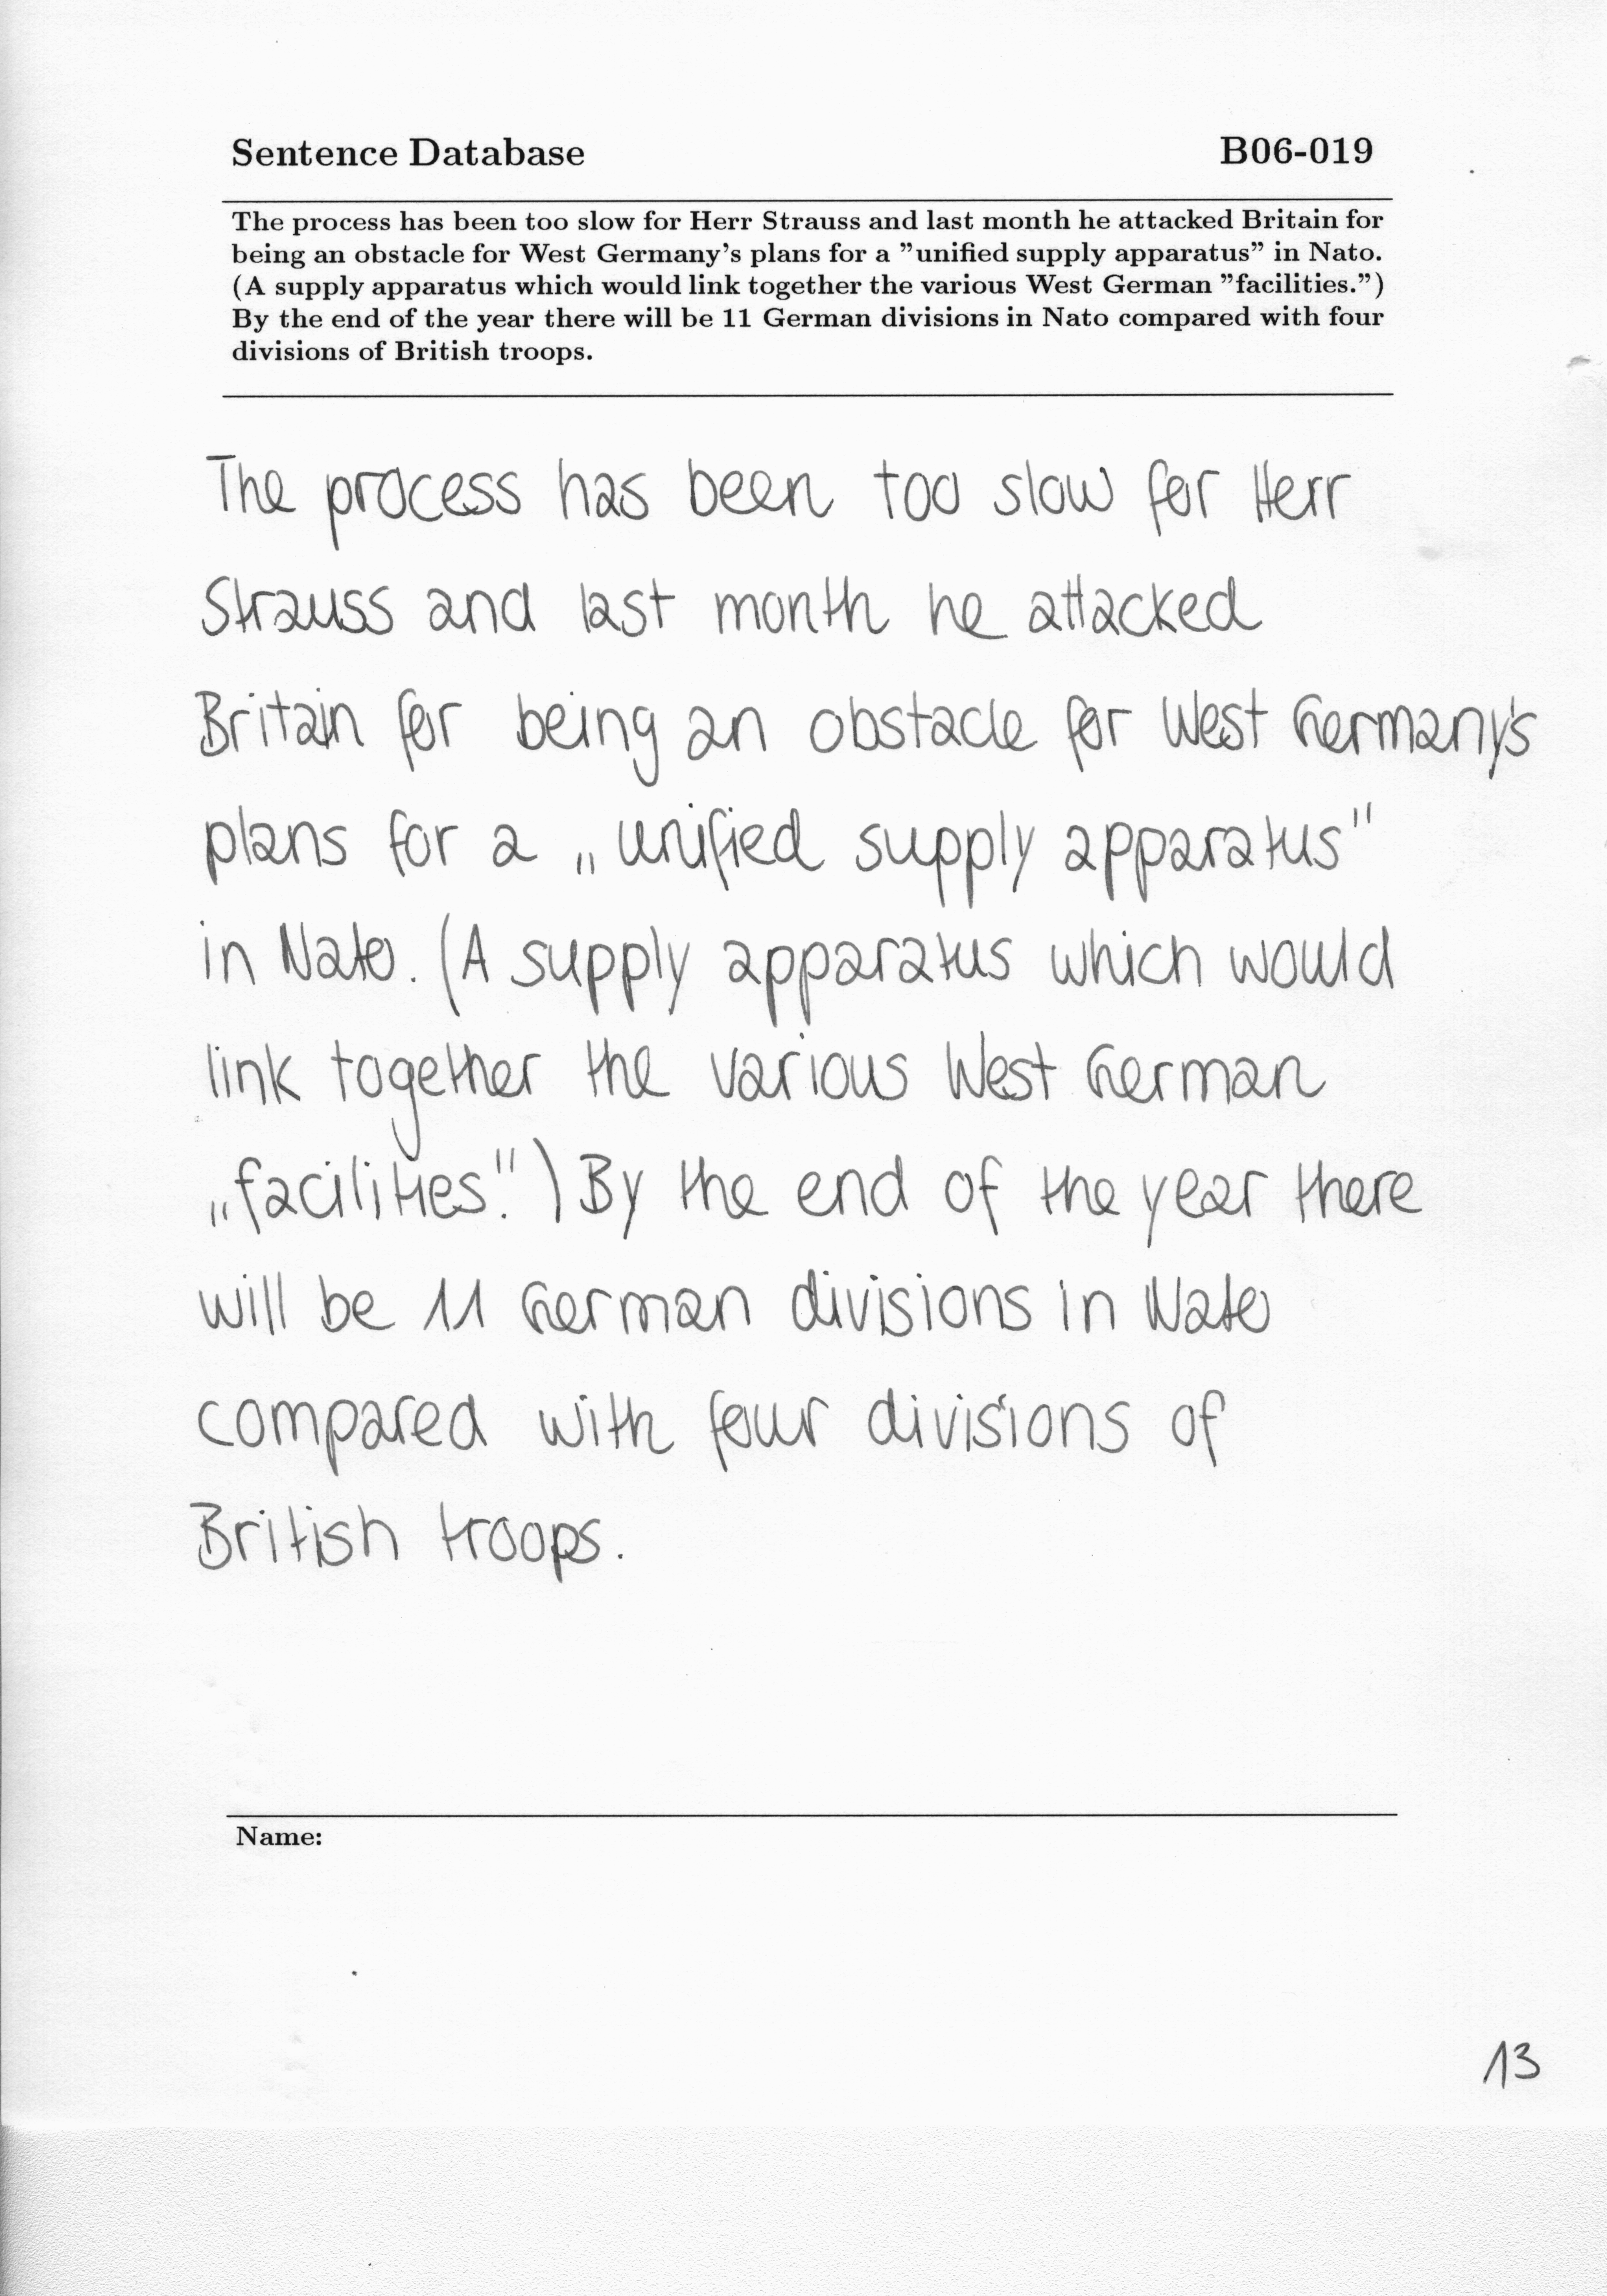 Sentence Database B06-019
The process has been too slow for Herr Strauss and last month he attacked Britain for
being an obstacle for West Germany's plans for a ”unified supply apparatus” in Nato.
(A supply apparatus which would link together the various West German ”facilities.”)
By the end of the year there will be 11 German divisions in Nato compared with four
divisions of British troops.
The process has been too slow for Herr
Strauss and last month he attacked
Britain for being an obstacle for West Germany's
plans for a „unified supply apparatus"
in Nato. (A supply apparatus which would
link together the various West German
„facilities.") By the end of the year there
will be 11 German divisions in Nato
compared with four divisions of
British troops.
Name:
13